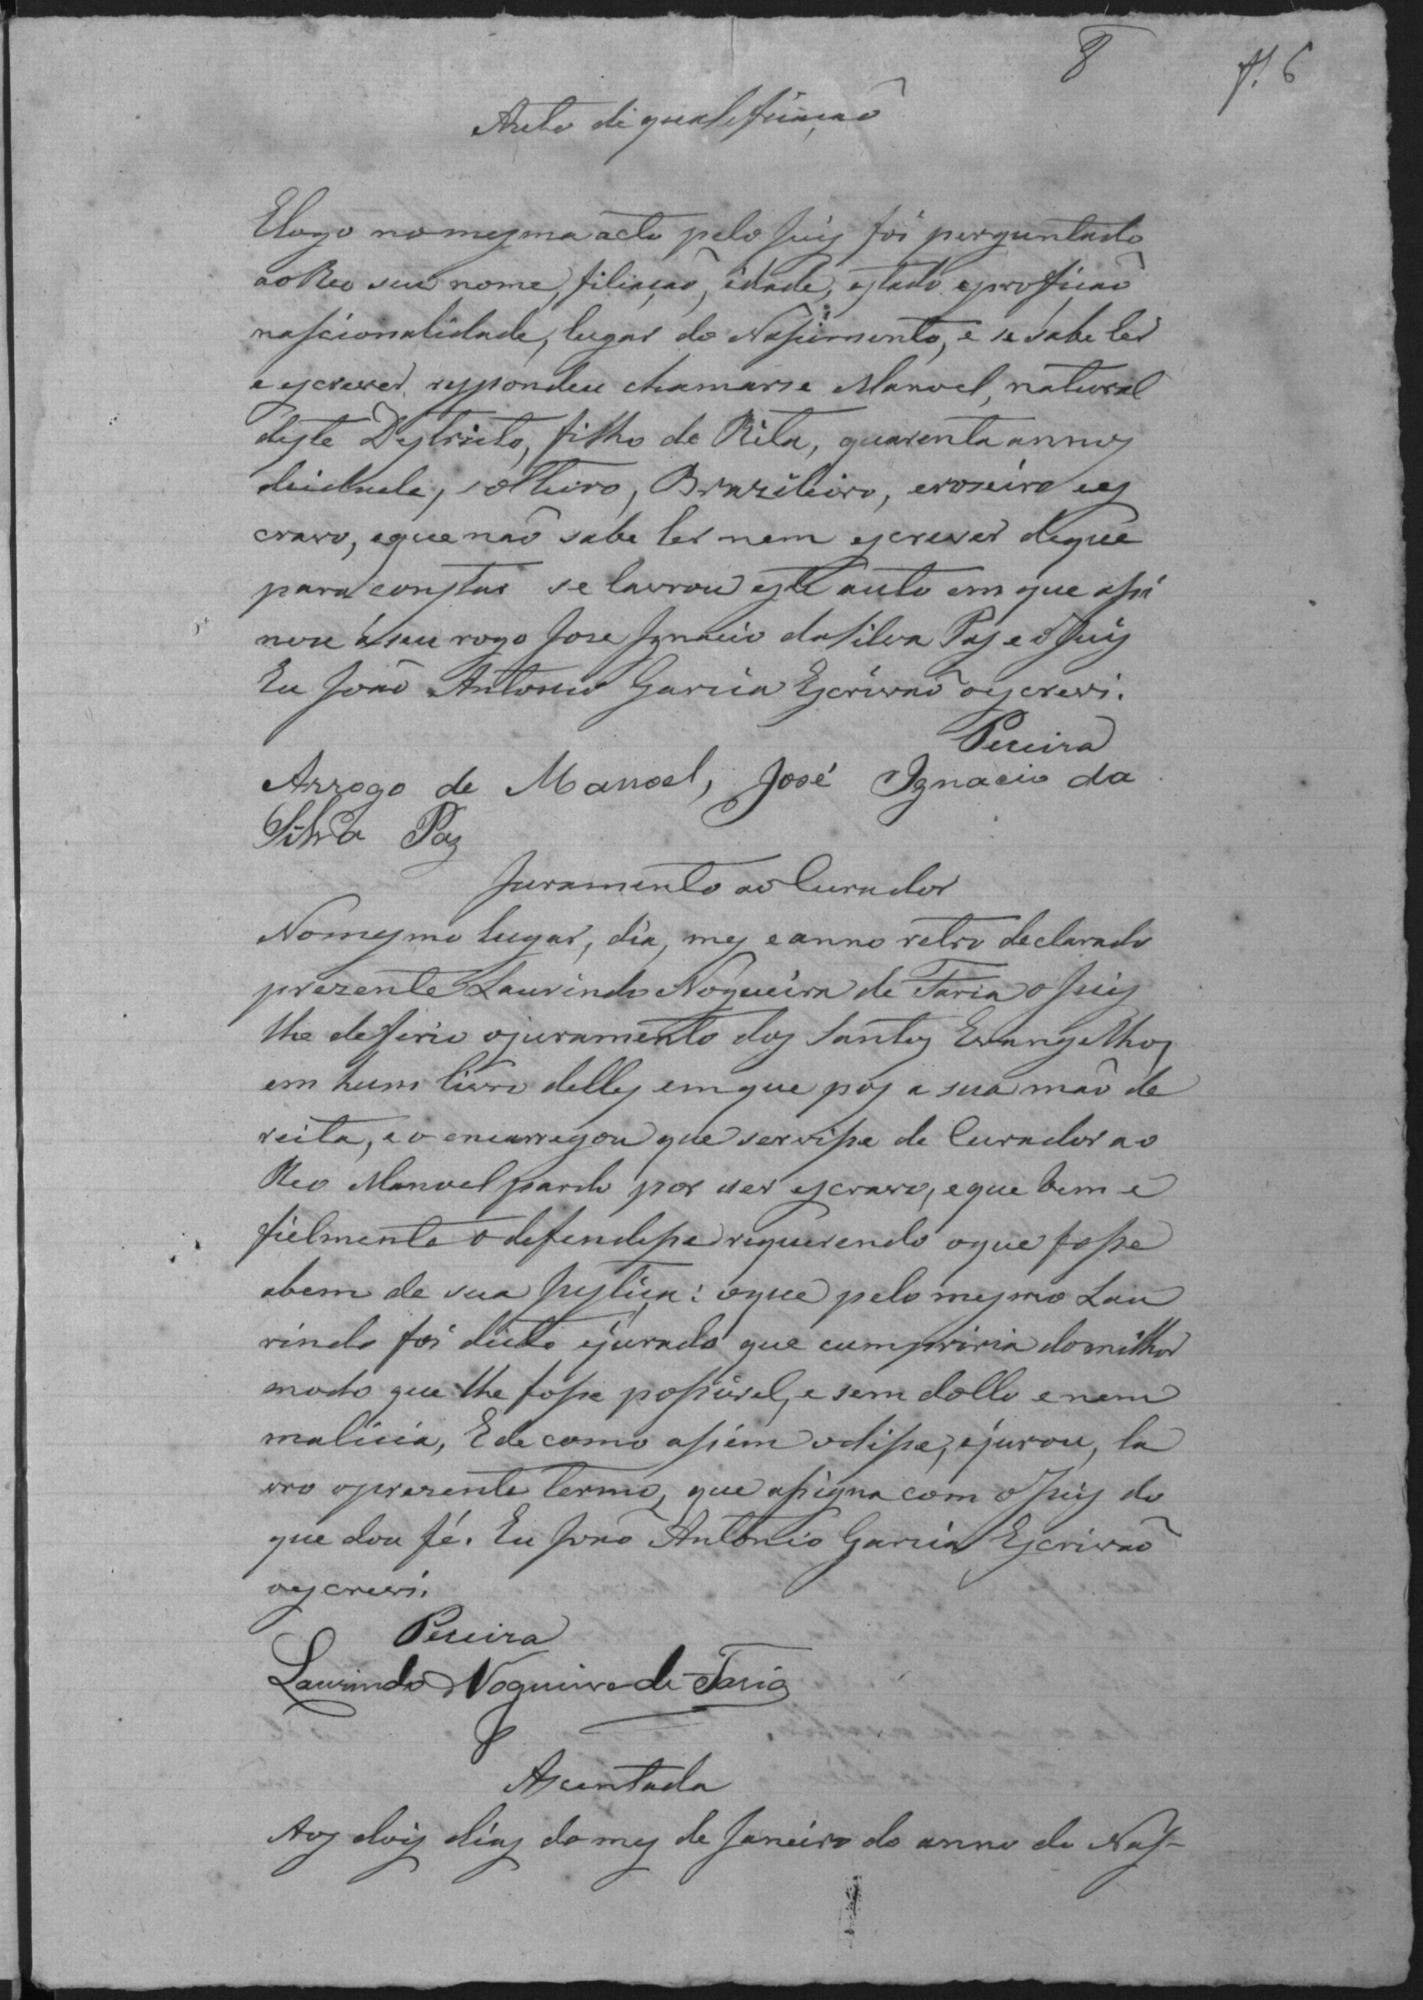 8 fl. 6
Auto de qualificação
E logo no mesmo acto pelo Juis foi perguntado
ao Reo seu nome, filiação, idade, estado e profição
nascionalidade, lugar do Nascimento, e se sabe ler
e escrever respondeu chamarse Manoel, natural
deste Destricto, filho de Rita, quarenta annos
deidade, solteiro, Brazileiro, eroseiro e es
cravo, eque naõ sabe ler nem escrever deque
para constar se lavrou este auto em que assi
nou á seu rogo Jose Ignacio da Silva Pas e o Juis
Eu João Antonio Garcia Escrivaõ o escrevi.
Pereira
Arrogo de Manoel, José Ignacio da
Silva Paz
Juramento ao Curador
No mesmo lugar, dia, mes e anno retro declarado
prezente Laurindo Nogueira de Faria o Juis
lhe deferio o juramento dos Santos Evangelhos
em hum livro delles em que pos a sua mão de
reita, e o encarregou que servisse de Curador ao
Reo Manoel pardo por ser escravo, e que bem e
fielmente o defendesse requerendo o que fosse
abem de sua Justiça: oque pelo mesmo Lau
rindo foi dicto ejurado que cumpriria do milhor
modo que lhe fosse possivel, e sem dollo e nem
malicia, E de como assim o disse, ejurou, la
vro o prezente termo, que assigna com o Juis do
que dou fé. Eu João Antonio Garcia Escrivaõ
o escrevi.
Pereira
Laurindo Nogueira de Faria
Asentada
Aos dois dias do mes de Janeiro do anno do Nas-